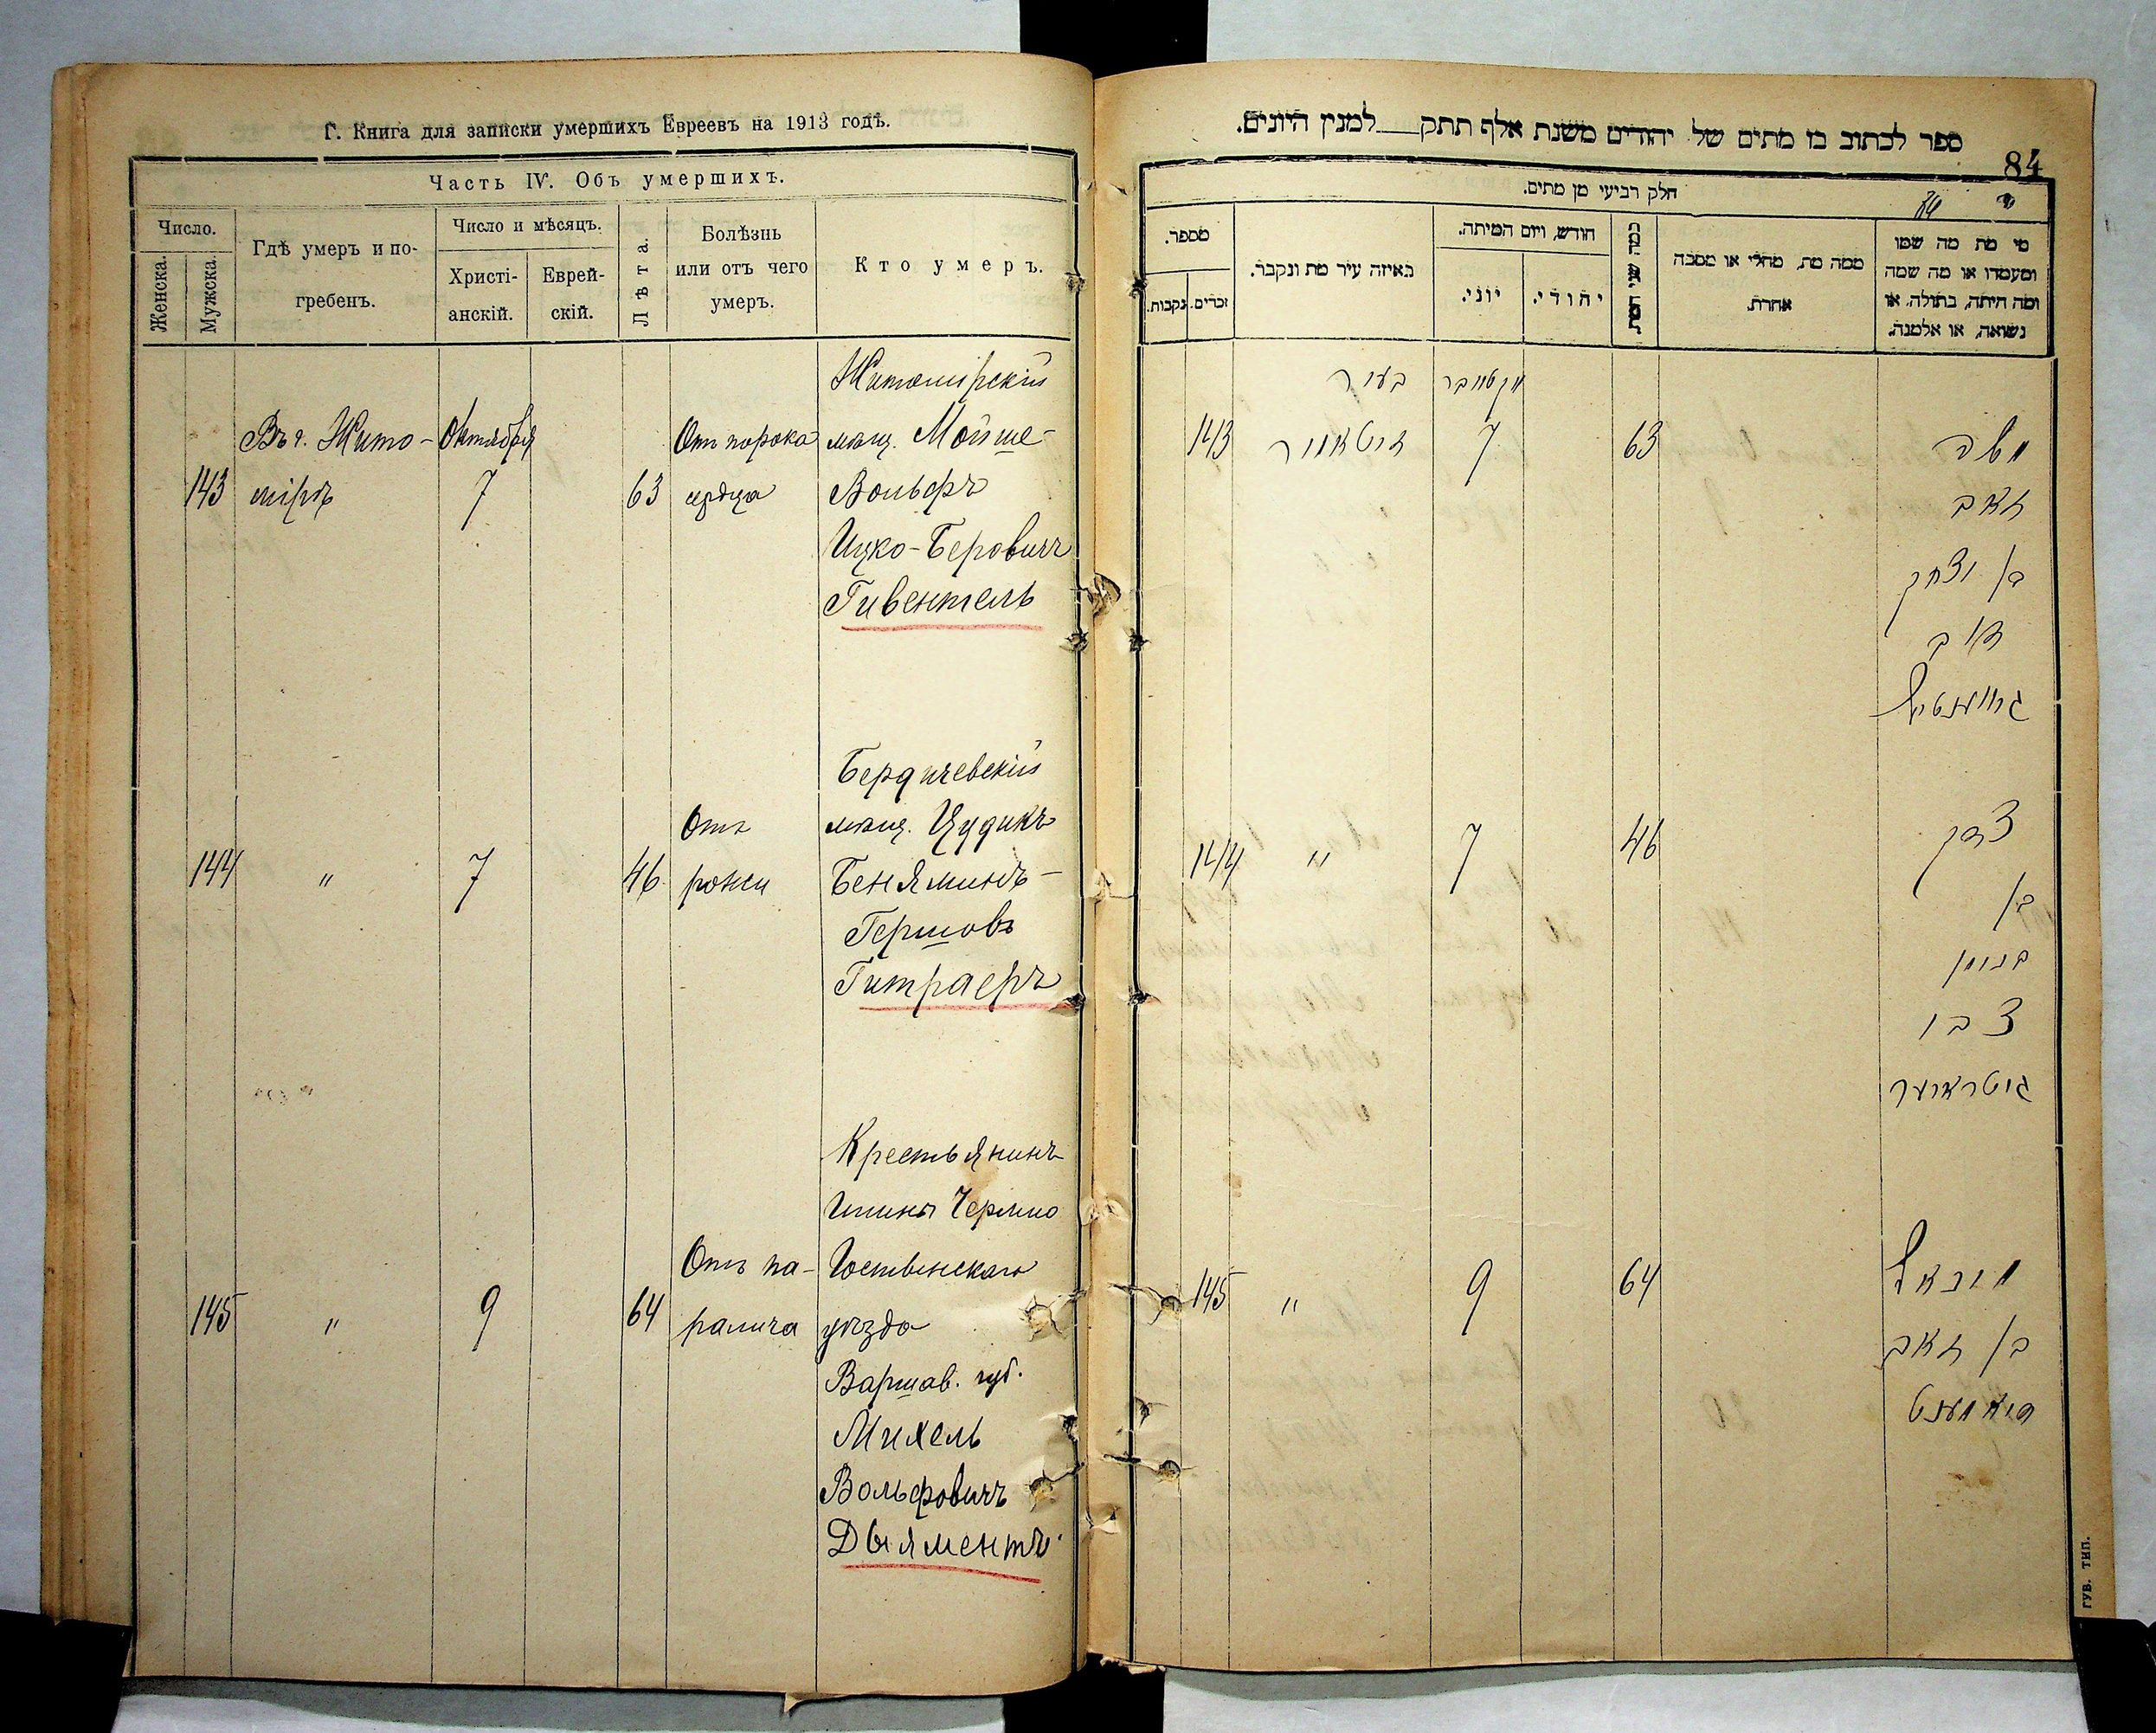 Г. Книга для записки умершихъ Евреевъ на 1913 годъ.
Часть IV. Объ умершихъ.
Число.
Женска.
Мужска.
Гдѣ умеръ и по-
гребенъ.
Число и мѣсяцъ.
Христі-
анскій.
Еврей-
скій.
Лѣта.
Болѣзнь
или отъ чего
умеръ.
Кто умеръ.
143
Въ г. Жито-
мірѣ
Октября
7
63
Отъ порока
сердца
Житомірскій
мѣщ. Мойше-
Вольфъ
Ицко-Беровичъ
Гивентель
144
"
7
46
Отъ
рожи
Бердичевскій
мѣщ. Цудикъ
Беняминъ-
Гершовъ
Гитраеръ
145
"
9
64
Отъ па-
ралича
Крестьянинъ
Гмины Чермно
Гостынскаго
уѣзда
Варшав. губ.
Михель
Вольфовичъ
Дыяментъ
ספר לכתוב בו מתים של יהודים משנת אלף תתק למנין היונים.
84
חלק רביעי מן מתים.
מספר.
זכרים.
נקבות.
באיזה עיר מת ונקבר.
חודש, ויום המיתה.
יוני.
יהודי.
כמה שני המת.
ממה מת, מחלי או מסבה
אחרת.
מי מת מה שמו
ומעמדו או מה שמה
ומה היתה, בתולה, או
נשואה, או אלמנה.
143
בעיר
זיטאמיר
אקטובר
7
63
משה
זאב
בן יצחק
דוב
גיווענטיל
144
"
7
46
צדק
בן
בנימין
צבי
גיטראיער
145
"
9
64
מיכאל
בן זאב
דיאמענט
ГУБ. ТИП.